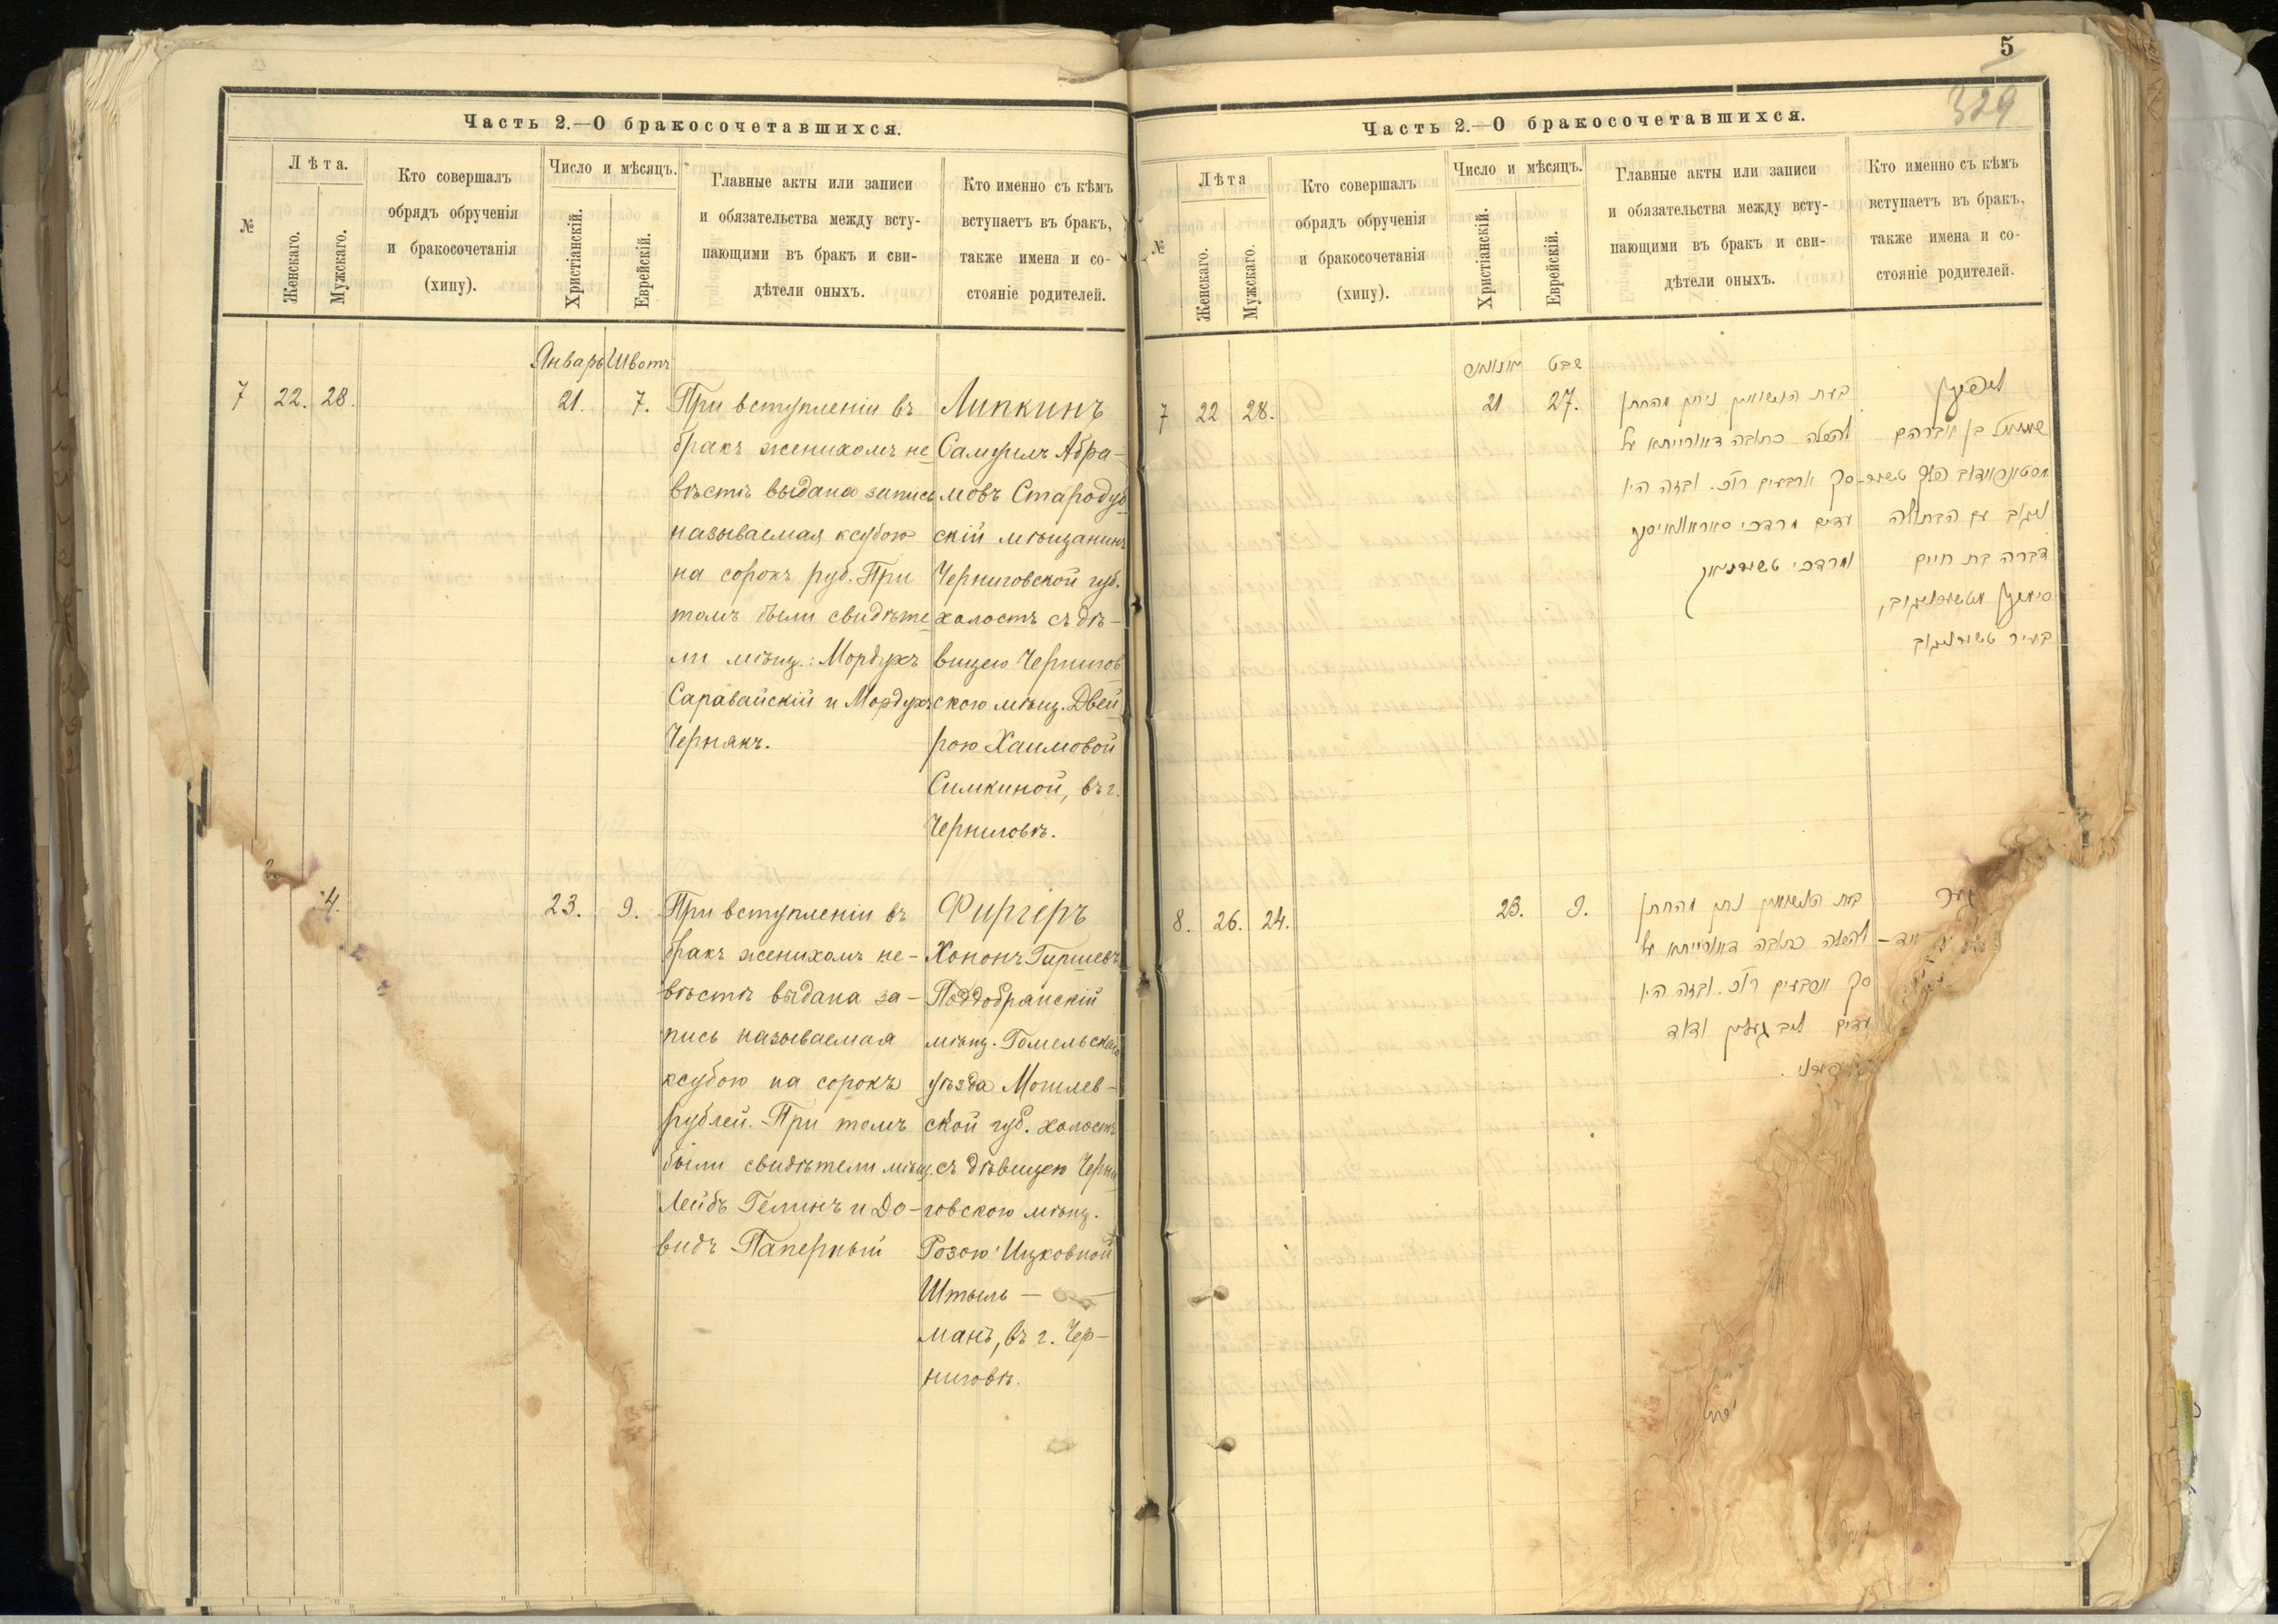 Часть 2.—О бракосочетавшихся.
№
Лѣта.
Женскаго.
Мужскаго.
Кто совершалъ
обрядъ обрученія
и бракосочетанія
(хипу).
Число и мѣсяцъ.
Христіанскій.
Еврейскій.
Главные акты или записи
и обязательства между всту-
пающими въ бракъ и сви-
дѣтели оныхъ.
Кто именно съ кѣмъ
вступаетъ въ бракъ,
также имена и со-
стояніе родителей.
Январь Швотъ
7 22. 28. 21. 7.
При вступленіи въ
бракъ женихомъ не-
вѣстѣ выдана запись
называемая ксубою
на сорокъ руб. При
томъ были свидѣте-
ли мѣщ.: Мордухъ
Саравайскій и Мордухъ
Чернякъ.
Липкинъ
Самуилъ Абра-
мовъ Стародуб-
скій мѣщанинъ
Черниговской губ.
холостъ съ дѣ-
вицею Чернигов-
скою мѣщ. Двей-
рою Хаимовой
Симкиной, въ г.
Черниговѣ.
4. 23. 9.
При вступленіи въ
бракъ женихомъ не-
вѣстѣ выдана за-
пись называемая
ксубою на сорокъ
рублей. При томъ
были свидѣтели мѣщ.
Лейбъ Гелинъ и До-
видъ Паперный
Фиргеръ
Хононъ Гиршевъ
Поддобрянскій
мѣщ. Гомельскаго
уѣзда Могилев-
ской губ. холостъ
съ дѣвицею Черни-
говскою мѣщ.
Розою Ицковной
Штыль-
манъ, въ г. Чер-
ниговѣ.
5
329
Часть 2.—О бракосочетавшихся.
№
Лѣта
Женскаго.
Мужскаго.
Кто совершалъ
обрядъ обрученія
и бракосочетанія
(хипу).
Число и мѣсяцъ.
Христіанскій.
Еврейскій.
Главные акты или записи
и обязательства между всту-
пающими въ бракъ и сви-
дѣтели оныхъ.
Кто именно съ кѣмъ
вступаетъ въ бракъ,
также имена и со-
стояніе родителей.
שבט
7 22 28. 21 27.
בעת הנשואין ניתן מהחתן
להכלה כתובה דאורייתא על
סך ארבעים רו״כ. ובזה היו
עדים מרדכי
ומרדכי
בן אברהם
עם הבתולה
דברה בת חיים
בעיר
8. 26. 24. 23. 9.
בעת הנשואין ניתן מהחתן
להכלה כתובה דאורייתא על
סך ארבעים רו״כ. ובזה היו
עדים ליב געלין ודוד